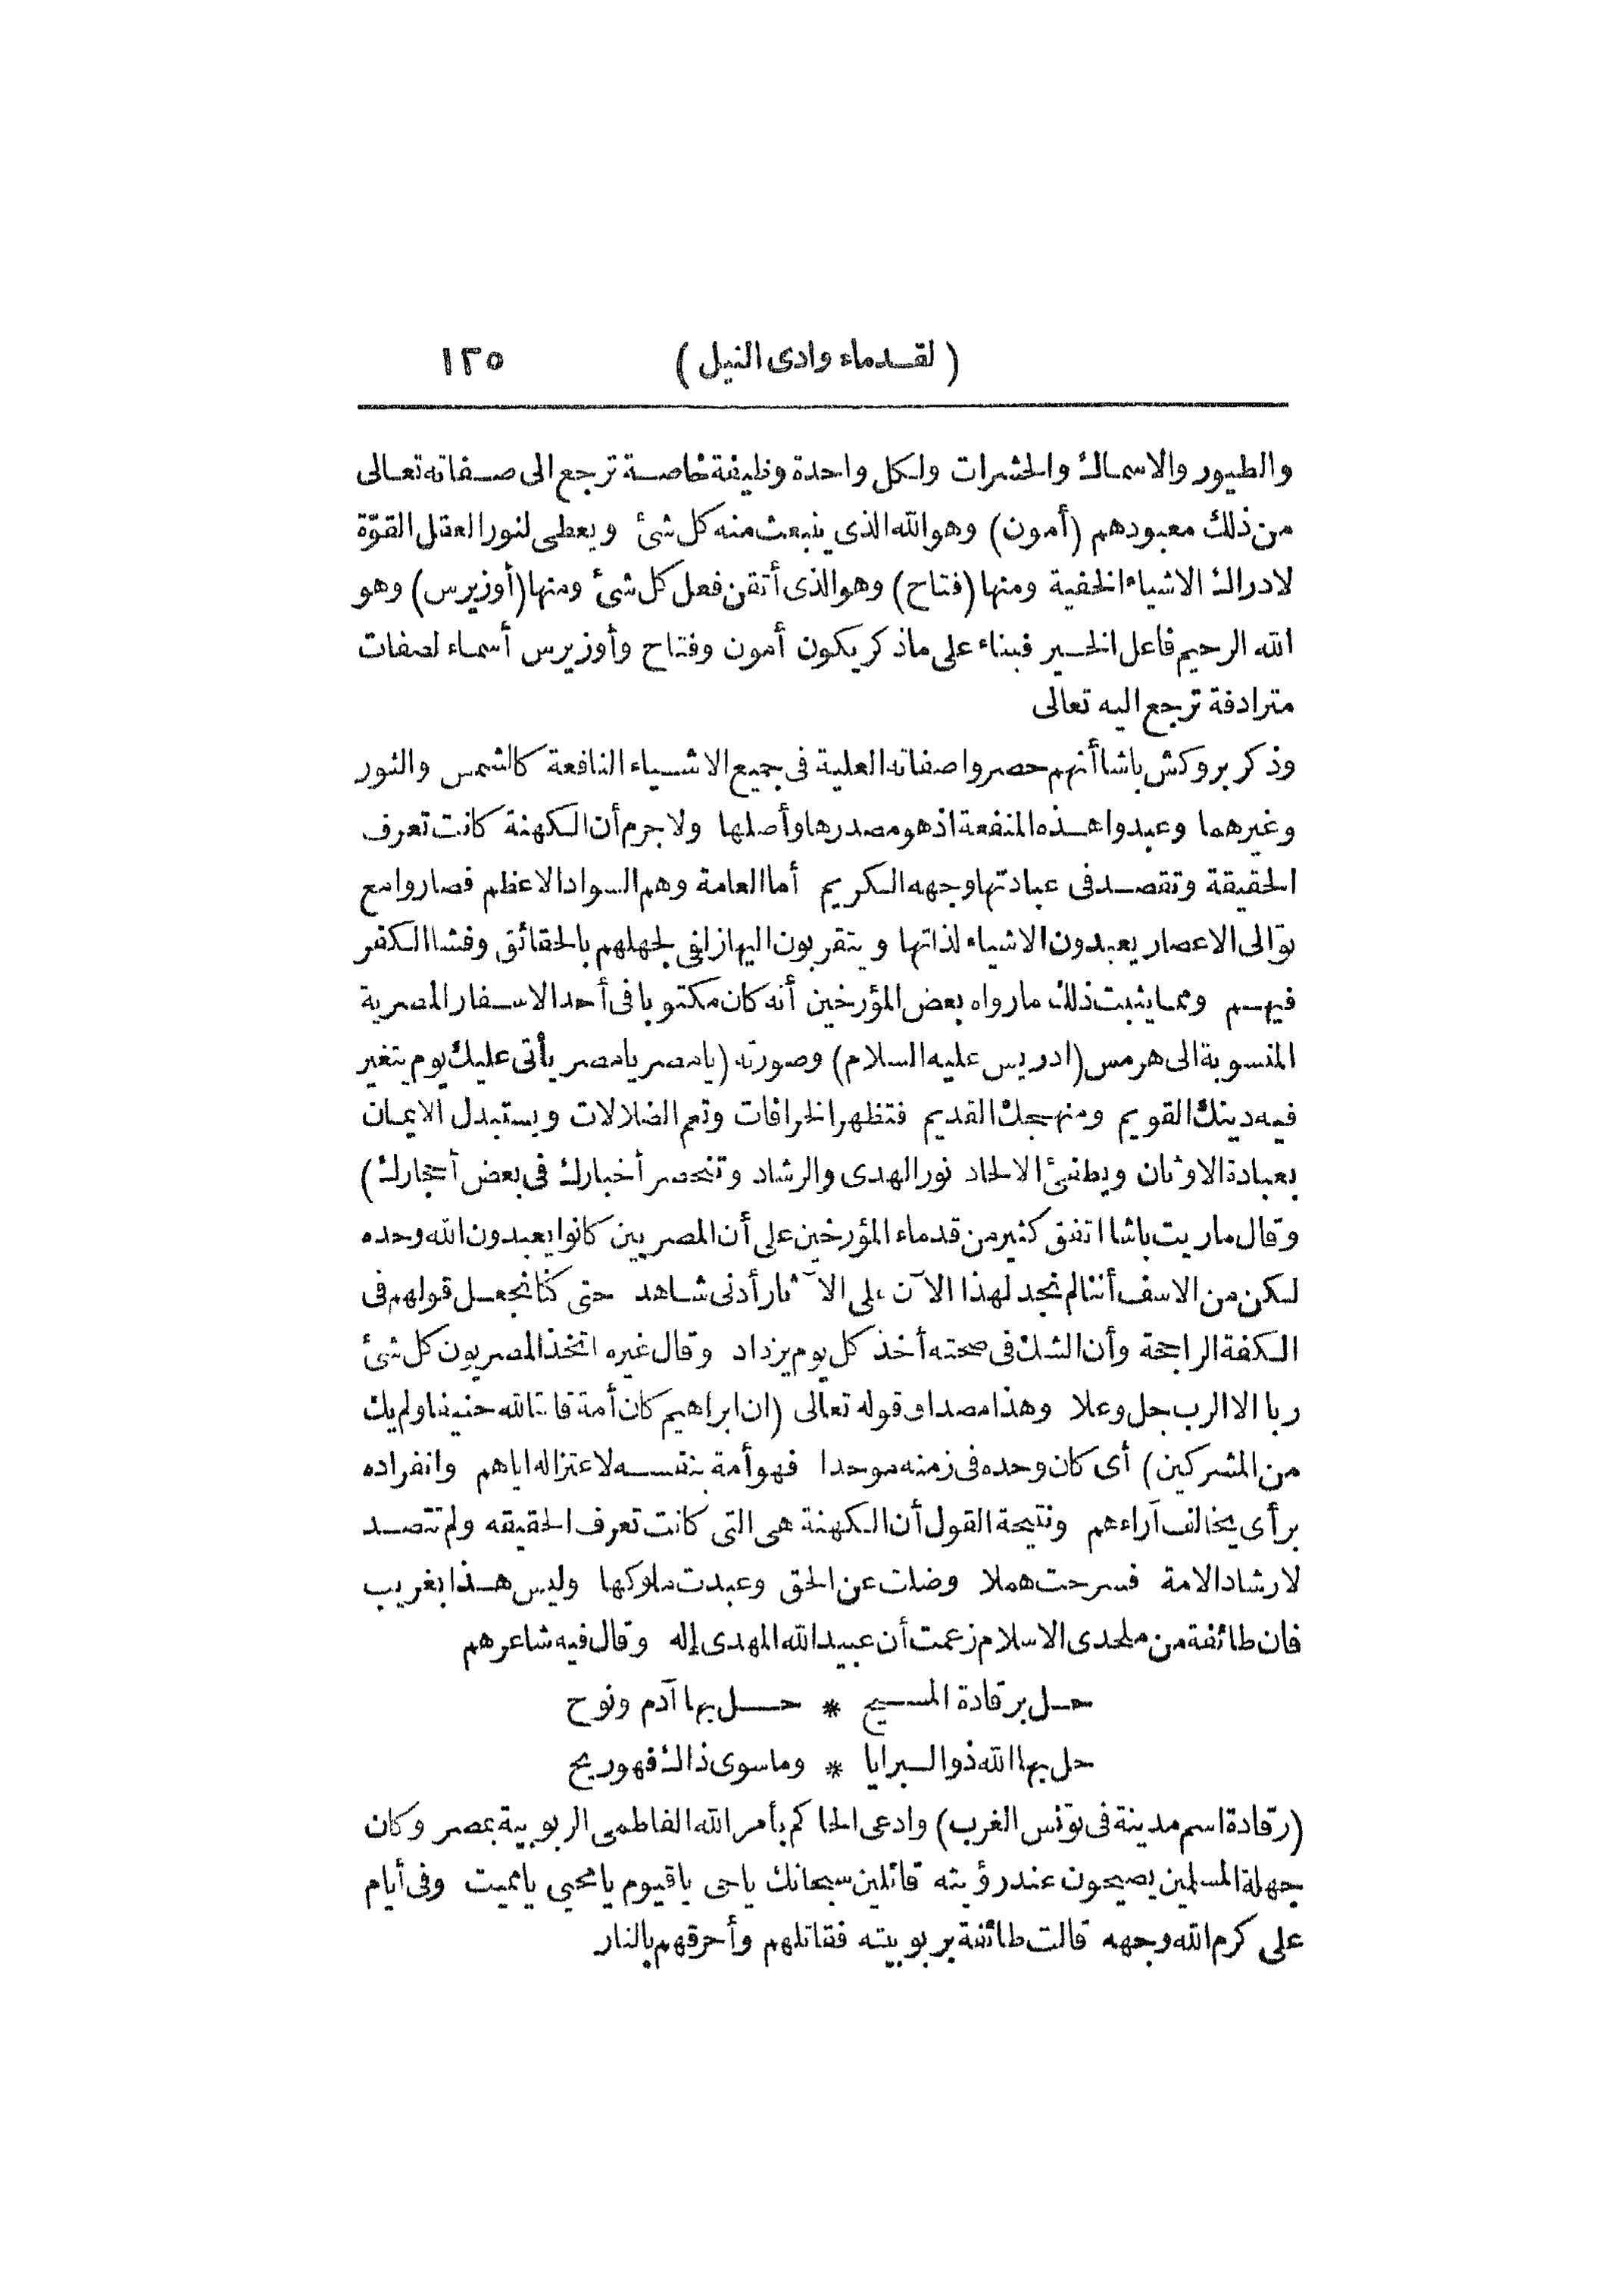 ( لقدماء وادى النيل ) ١٢٥
والطيور والاسماك والحشرات ولكل واحدة وظيفة خاصة ترجع الى صفاته تعالى
من ذلك معبودهم (أمون) وهو الله الذى ينبعث منه كل شئ ويعطى لنور العقل القوّة
لادراك الاشياء الخفية ومنها (فتاح) وهو الذى أتقن فعل كل شئ ومنها (أوزيرس) وهو
الله الرحيم فاعل الخير فبناء على ماذكر يكون أمون وفتاح وأوزيرس أسماء لصفات
مترادفة ترجع اليه تعالى
وذكر بروكش باشا أنهم حصروا صفاته العلية فى جميع الاشياء النافعة كالشمس والنور
وغيرهما وعبدوا هذه المنفعة اذ هو مصدرها وأصلها ولاجرم أن الكهنة كانت تعرف
الحقيقة وتقصد فى عبادتها وجهه الكريم أما العامة وهم السواد الاعظم فصاروا مع
توالى الاعصار يعبدون الاشياء لذاتها ويتقربون اليها زلفى لجهلهم بالحقائق وفشا الكفر
فيهم ومما يثبت ذلك مارواه بعض المؤرخين أنه كان مكتوبا فى أحد الاسفار المصرية
المنسوبة الى هرمس (ادريس عليه السلام) وصورته (يامصر يامصر يأتى عليك يوم يتغير
فيه دينك القويم ومنهجك القديم فتظهر الخرافات وتعم الضلالات ويستبدل الايمان
بعبادة الاوثان ويطفئ الالحاد نور الهدى والرشاد وتنحصر أخبارك فى بعض أحجارك)
وقال ماريت باشا اتفق كثير من قدماء المؤرخين على أن المصريين كانوا يعبدون الله وحده
لكن من الاسف أننالم نجد لهذا الآن على الآثار أدنى شاهد حتى كنا نجعل قولهم فى
الكفة الراجحة وأن الشك فى صحته أخذ كل يوم يزداد وقال غيره اتخذ المصريون كل شئ
ربا الا الرب جل وعلا وهذا مصداق قوله تعالى (ان ابراهيم كان أمة قانتا لله حنيفا ولم يك
من المشركين) أى كان وحده فى زمنه موحدا فهو أمة بنفسه لاعتزاله اياهم وانفراده
برأى يخالف آراءهم ونتيجة القول أن الكهنة هى التى كانت تعرف الحقيقه ولم تتصد
لارشاد الامة فسرحت هملا وضلت عن الحق وعبدت ملوكها وليس هذا بغريب
فان طائفة من ملحدى الاسلام زعمت أن عبيد الله المهدى إله وقال فيه شاعرهم
حل برقادة المسيح * حل بها آدم ونوح
حل بها الله ذو البرايا * وماسوى ذاك فهو ريح
(رقادة اسم مدينة فى تونس الغرب) وادعى الحاكم بأمر الله الفاطمى الربوبية بمصر وكان
جهلة المسلمين يصيحون عند رؤيته قائلين سبحانك ياحى ياقيوم يامحيي يامميت وفى أيام
على كرم الله وجهه قالت طائفة بربوبيته فقاتلهم وأحرقهم بالنار